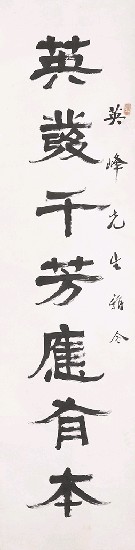 英峰先生雅令
英發千芳應有本